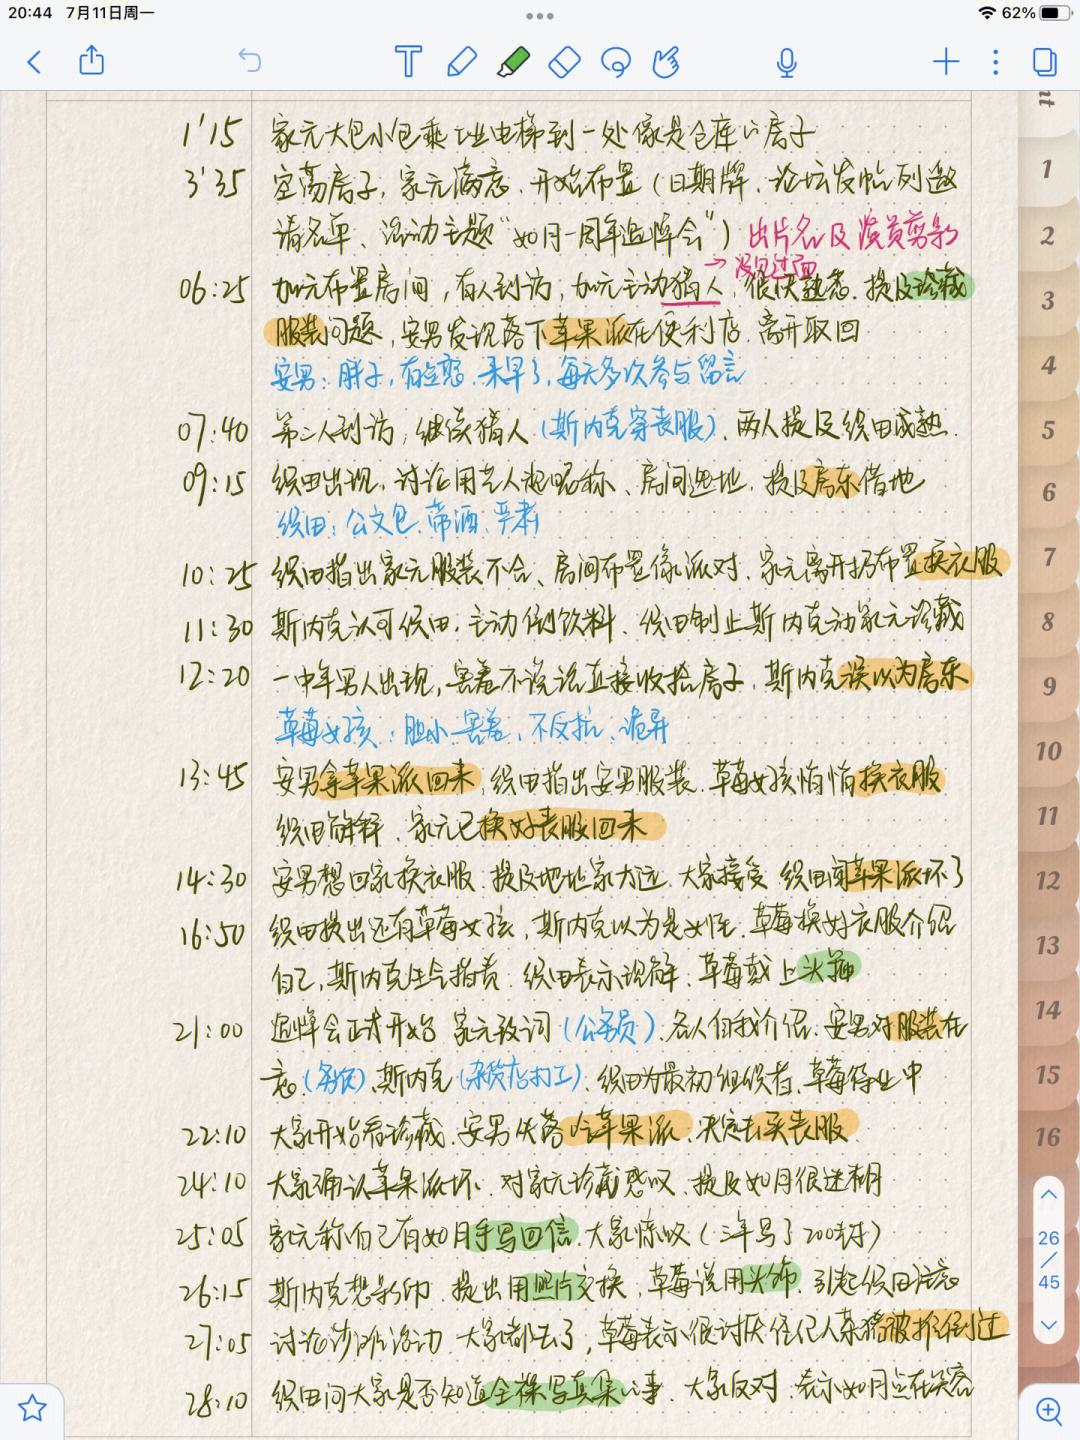 20:44 7月11日周一
62%
1'15 家元大包小包乘工业电梯到一处像是仓库的房子
3'35 空荡房子,家元满意.开始布置(日期牌、论坛发帖列邀
请名单、活动主题"如月一周年追悼会")出片名及演员剪影
→没见过面
06:25 加元布置房间,有人到访,加元主动猜人,很快熟悉.提及珍藏
服装问题,安男发现落下苹果派在便利店.离开取回
安男:胖子,有 来早了,每天多次参与留言
07:40 第二人到访,继续猜人(斯内克穿丧服).两人提及织田成熟.
09:15 织田出现,讨论用艺人起昵称、房间选地.提及房东借地
织田:公文包.带酒.严肃
10:25 织田指出家元服装不合、房间布置像派对.家元离开扔布置换衣服
11:30 斯内克认可织田.主动倒饮料.织田制止斯内克动家元珍藏
12:20 一中年男人出现,害羞不说话直接收拾房子,斯内克误以为房东
草莓女孩:胆小.害羞、不反抗、诡异
13:45 安男拿苹果派回来,织田指出安男服装.草莓女孩悄悄换衣服
织田解释.家元已换好丧服回来
14:30 安男想回家换衣服.提及地址家太远.大家接受 织田闻苹果派坏了
16:50 织田提出还有草莓女孩,斯内克以为是女性.草莓换好衣服介绍
自己,斯内克生气指责.织田表示理解.草莓戴上头箍
21:00 追悼会正式开始 家元致词(公务员).各人自我介绍.安男对服装在
意(务农)、斯内克(杂货店打工).织田为最初组织者.草莓待业中
22:10 大家开始看珍藏.安男失落吃苹果派.决定去买丧服
24:10 大家确认苹果派坏.对家元珍藏感叹.提及如月很迷糊
25:05 家元称自己有如月手写回信.大家惊叹(三年写了200封)
26:15 斯内克想影印.提出用照片交换.草莓说用头饰.引起织田注意
27:05 讨论沙滩活动 大家都去了,草莓表示很讨厌.经纪人菜猪被推倒过
28:10 织田问大家是否知道全裸写真集的事.大家反对.表示如月总在笑容
1
2
3
4
5
6
7
8
9
10
11
12
13
14
15
16
26
/
45